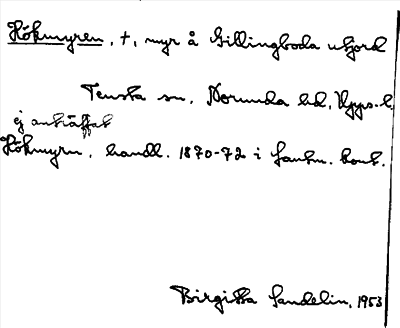 Hökmyren, +, myr å Gillingboda utjord
Tensta sn, Norunda hd, Upps. l.
ej anträffat
Hökmyrn, handl. 1870-72 i Lantm. kont.
Birgitta Sandelin, 1953